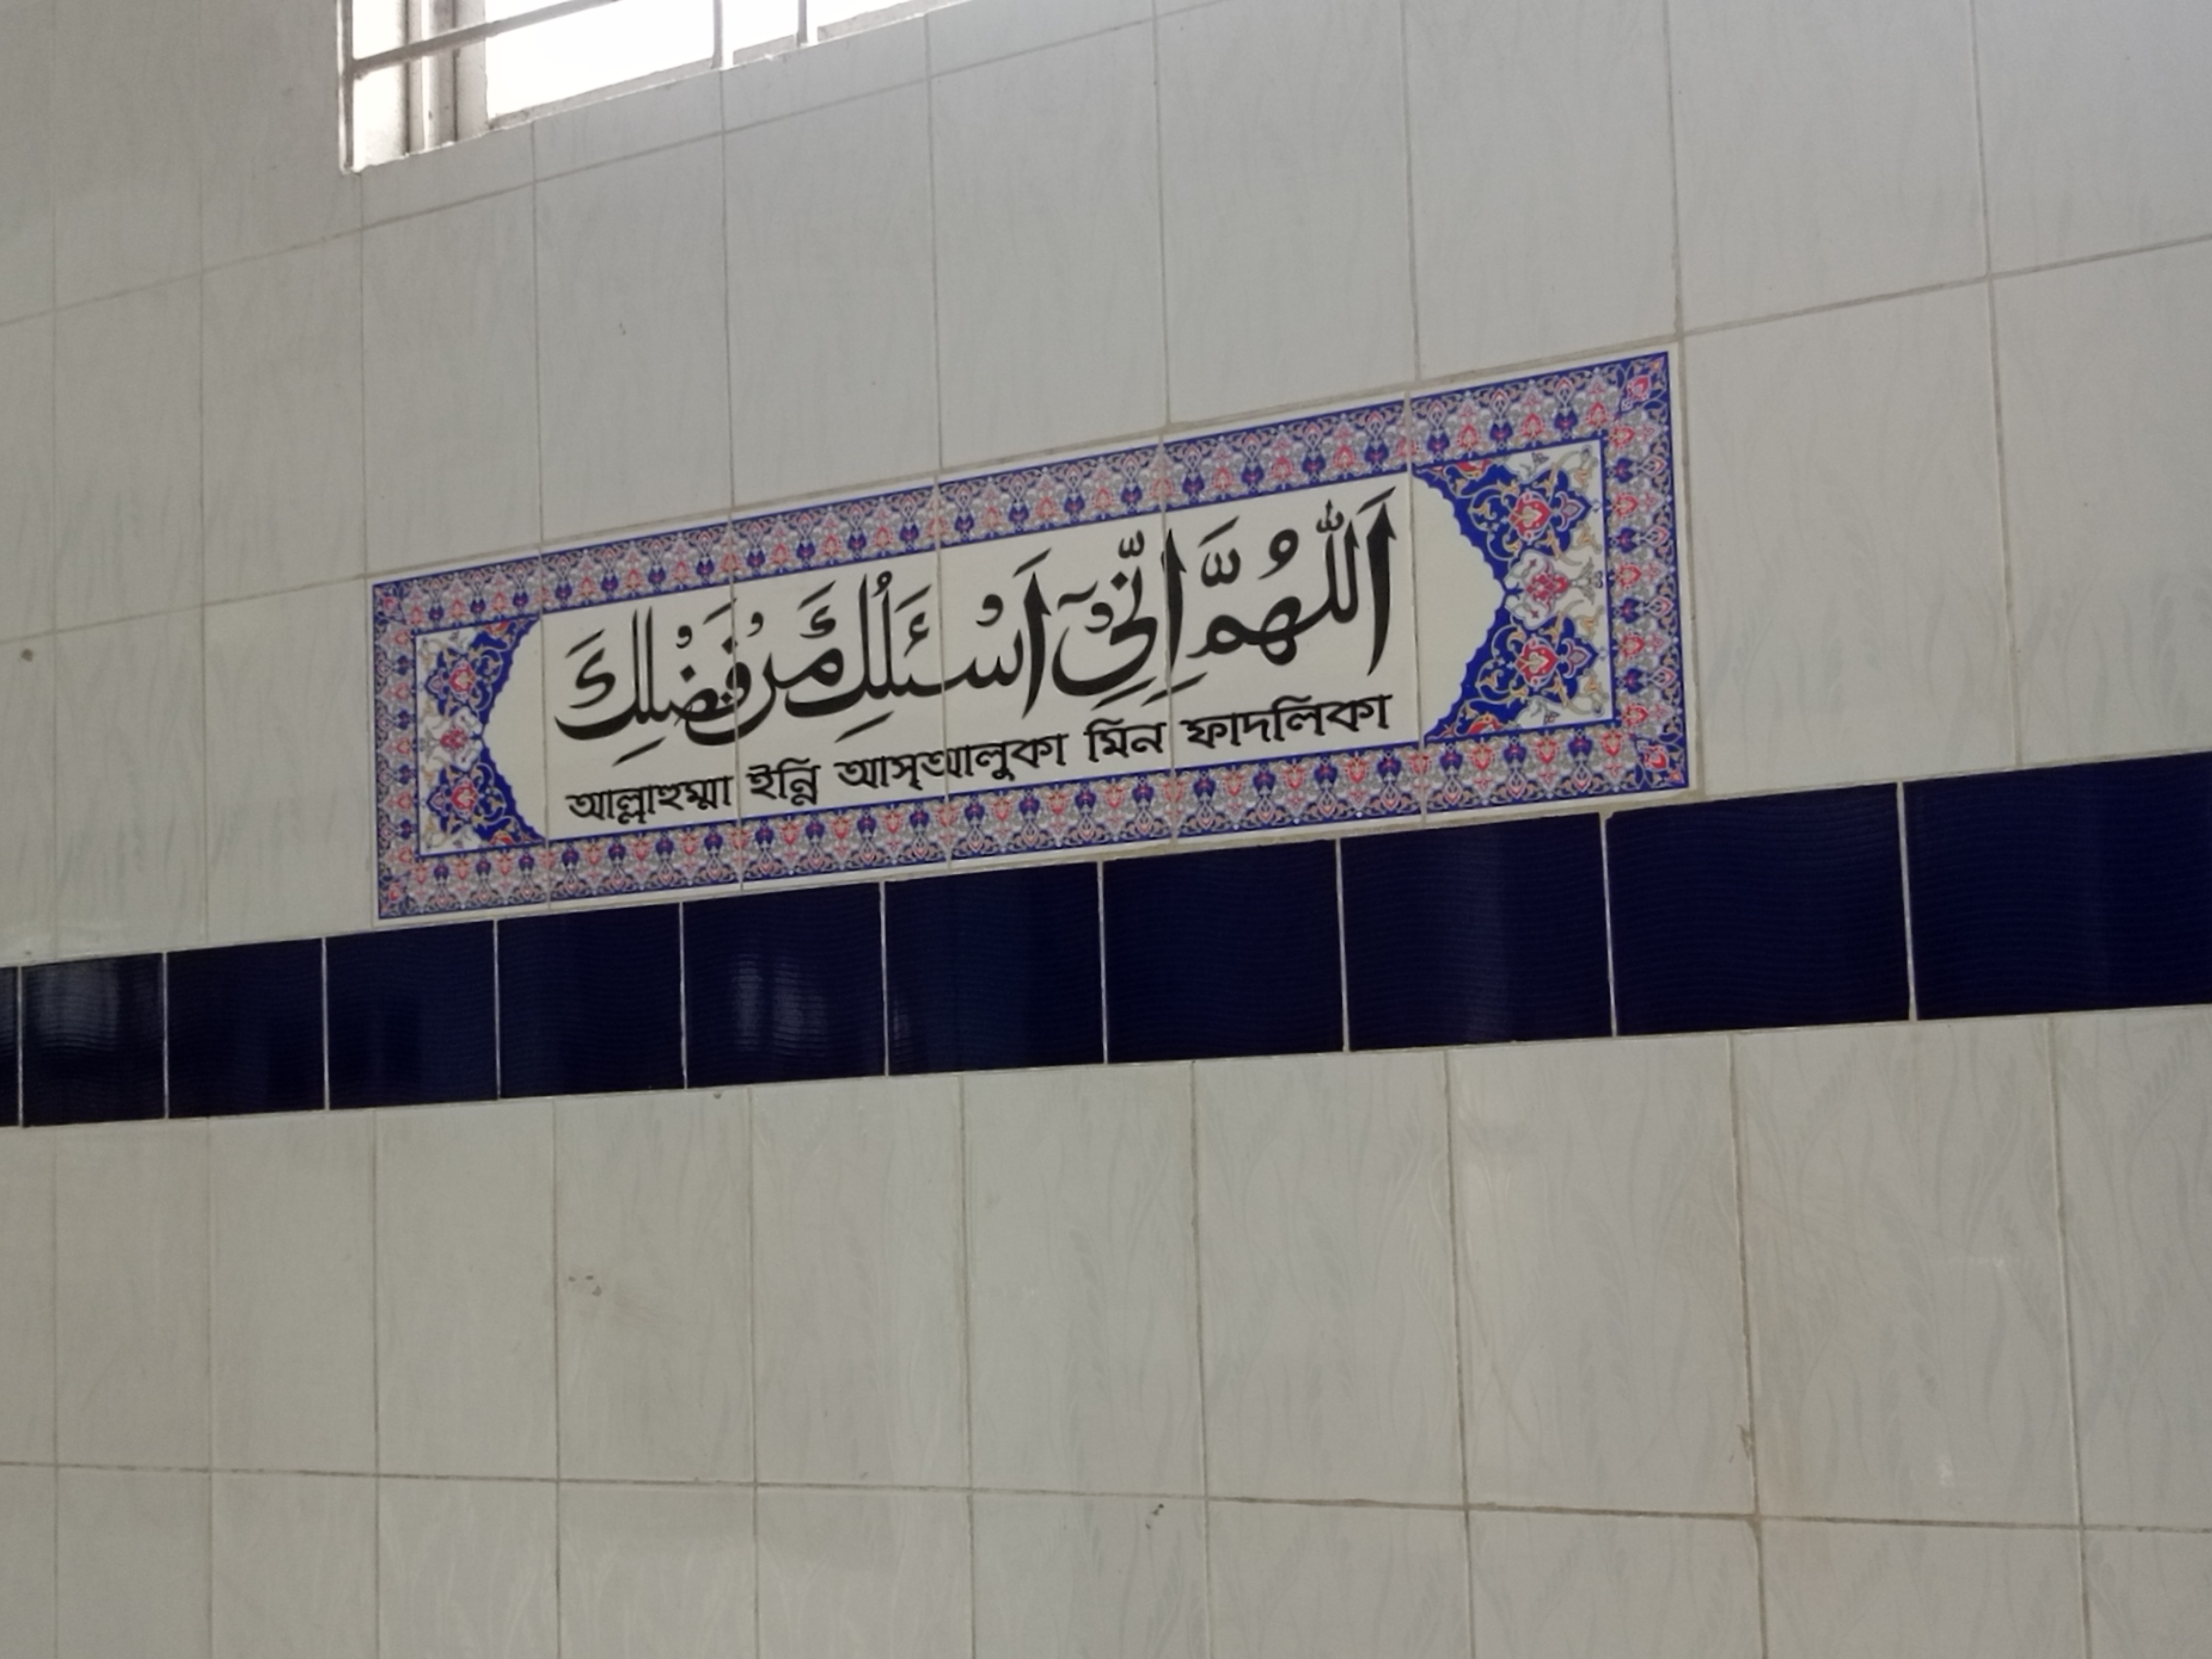 اَللّٰهُمَّ اِنِّیْۤ اَسْئَلُكَ مِنْ فَضْلِكَ
আল্লাহুম্মা ইন্নি আস্আলুকা মিন ফাদলিকা